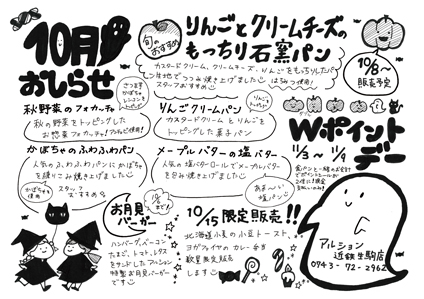 10月
おしらせ
旬の
おすすめ
りんごとクリームチーズの
もっちり石窯パン
カスタードクリーム、クリームチーズ、りんごをもっちりしたパン
生地でつつみ焼き上げました
はちみつ使用!
スタッフおすすめ
10/8〜
販売予定
秋野菜のフォカッチャ
さつまも
かぼちゃ
レンコンを
トッピング
秋の野菜をトッピングした
お惣菜フォカッチャ!
りんごクリームパン
カスタードクリームとりんごを
トッピングした菓子パン
かぼちゃのふわふわパン
人気のふわふわパンにかぼちゃ
を練りこみ焼き上げました
かぼちゃを
使用
スタッフ
おすすめ
メープルバターの塩バター
人気の塩バターロールでメープルバター
を包み焼き上げました
あま〜い
塩パン
Wポイント
デー
11/3〜11/9
お月見
バーガー
ハンバーグ、ベーコン
たまご、トマト、レタス
をサンドしたアルション
特製お月見バーガー
です
10/15限定販売!!
北海道小麦の小豆トースト、
ヨガフォイヤのカレー弁当
数量限定販売
します
アルション
近鉄生駒店
0743-72-2962